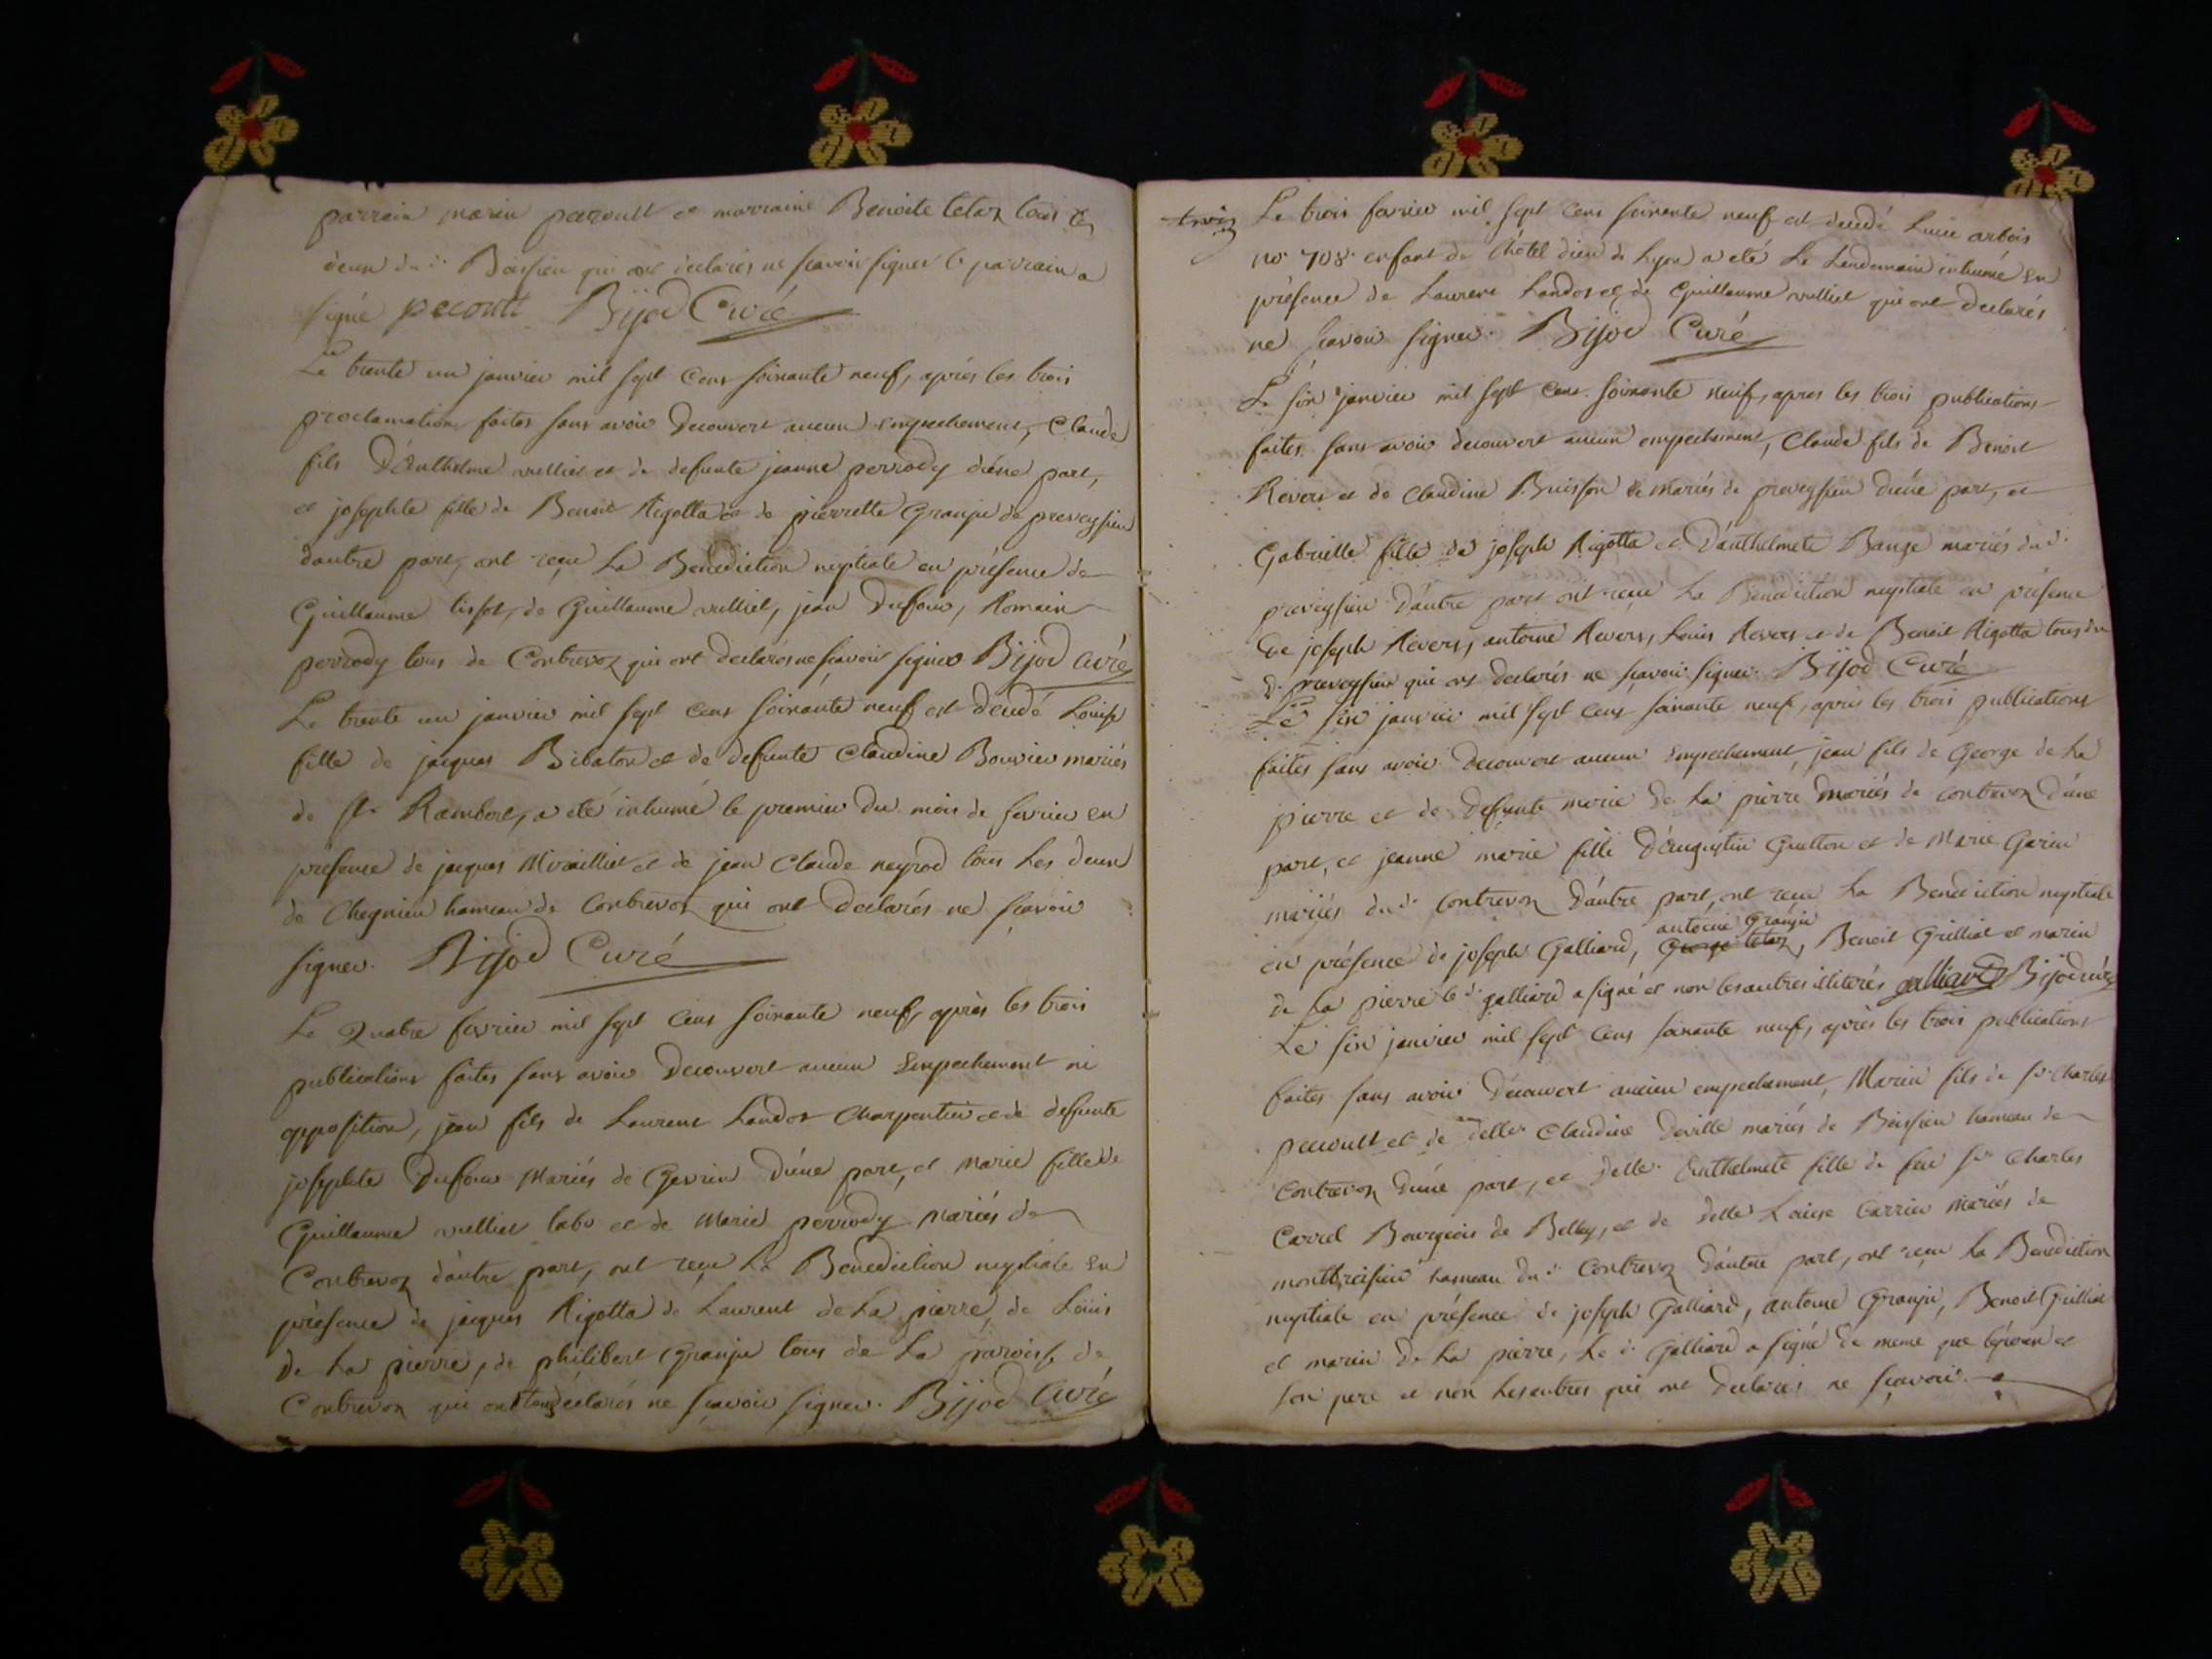 parrain marin pecoult et marraine Benoite tetaz tous les
deux du d. Boissieu qui ont declarés ne scavoir signer le parrain a
signé pecoult Bijod Curé
Le trente un janvier mil sept cens soixante neuf, après les trois
proclamations faites sans avoir decouvert aucun empechement, Claude
fils d'Anthelme vulliet et de defunte jeanne perrody d'une part,
et josephte fille de Benoit Rigotta et de pierrette Granju de preveyssieu
dautre part, ont reçu La Benediction nuptiale en présence de
Guillaume tissot, de Guillaume vulliet, jean Dufour, Romain
perrody tous de Contrevoz qui ont declarés ne scavoir signer Bijod Curé
Le trente un janvier mil sept cens soixante neuf est décédé Louise
fille de jacques Bibaton et de defunte Claudine Bouvier mariés
de St. Rambert, a été inhumé le premier du mois de fevrier en
présence de jacques Miraillet et de jean Claude neyrod tous Les deux
de Chegnieu hameau de Contrevoz qui ont declarés ne scavoir
signer. Bijod Curé
Le Quatre fevrier mil sept cens soixante neuf, après les trois
publications faites sans avoir decouvert aucun Empechement ni
opposition, jean fils de Laurent Landos Charpentier et de defunte
josephte Dufour Mariés de Gevrin d'une part, et Marie fille de
Guillaume vulliet labo et de Marie perrody mariés de
Contrevoz d'autre part, ont reçu La Benediction nuptiale en
présence de jacques Rigotta de Laurent de La pierre, de Loüis
de La pierre, de philibert Granju tous de La paroisse de
Contrevoz qui ont tous declarés ne scavoir signer. Bijod Curé
trois Le trois fevrier mil sept cens soixante neuf est decedé Luce arbois
no. 708. enfant de l'hôtel dieu de Lyon a été Le Lendemain inhumé en
présence de Laurent Landos et de Guillaume vulliet qui ont declarés
ne scavoir signer. Bijod Curé
Le six janvier mil sept cens soixante neuf, apres les trois publications
faites sans avoir decouvert aucun empechement, Claude fils de Benoit
Revers et de Claudine Buisson mariés de preveyssieu d'une part, et
Gabrielle fille de joseph Rigotta et d'anthelmete Bange mariés du d.
preveyssieu d'autre part ont reçu La Benediction nuptiale en présence
de joseph Revers, antoine Revers, Louis Revers et de Benoit Rigotta tous du
d. preveyssieu qui ont declarés ne scavoir signer. Bijod Curé
Le six janvier mil sept cens soixante neuf, après les trois publications
faites sans avoir decouvert aucun Empechement, jean fils de George de La
pierre et de defunte marie de La pierre mariés de contrevoz d'une
part, et jeanne marie fille d'Augustin Grutton et de Marie Garin
mariés du d. Contrevoz d'autre part, ont reçu La Benediction nuptiale
antoine Granju
en présence de joseph Galliard, George tetaz, Benoit Grilliat et marin
de La pierre le d. galliard a signé et non les autres illiterés galliard Bijod curé
Le six janvier mil sept cens soixante neuf, après les trois publications
faites sans avoir decouvert aucun empechement, Marin fils de Sr. Charles
pecoult et de Delle. Claudine Deville mariés de Boissieu hameau de
Contrevoz d'une part, et Delle. Anthelmete fille de feu Sr. Charles
Carrel Bourgeois de Belley, et de Delle Louise Carrier Mariés de
montbreisieu hameau du d. Contrevoz d'autre part, ont reçu La Benediction
nuptiale en présence de joseph Galliard, antoine Granju, Benoit Grilliat
et marin de La pierre, Le d. Galliard a signé de meme que l'époux et
son pere et non Les autres qui ont declarés ne scavoir.